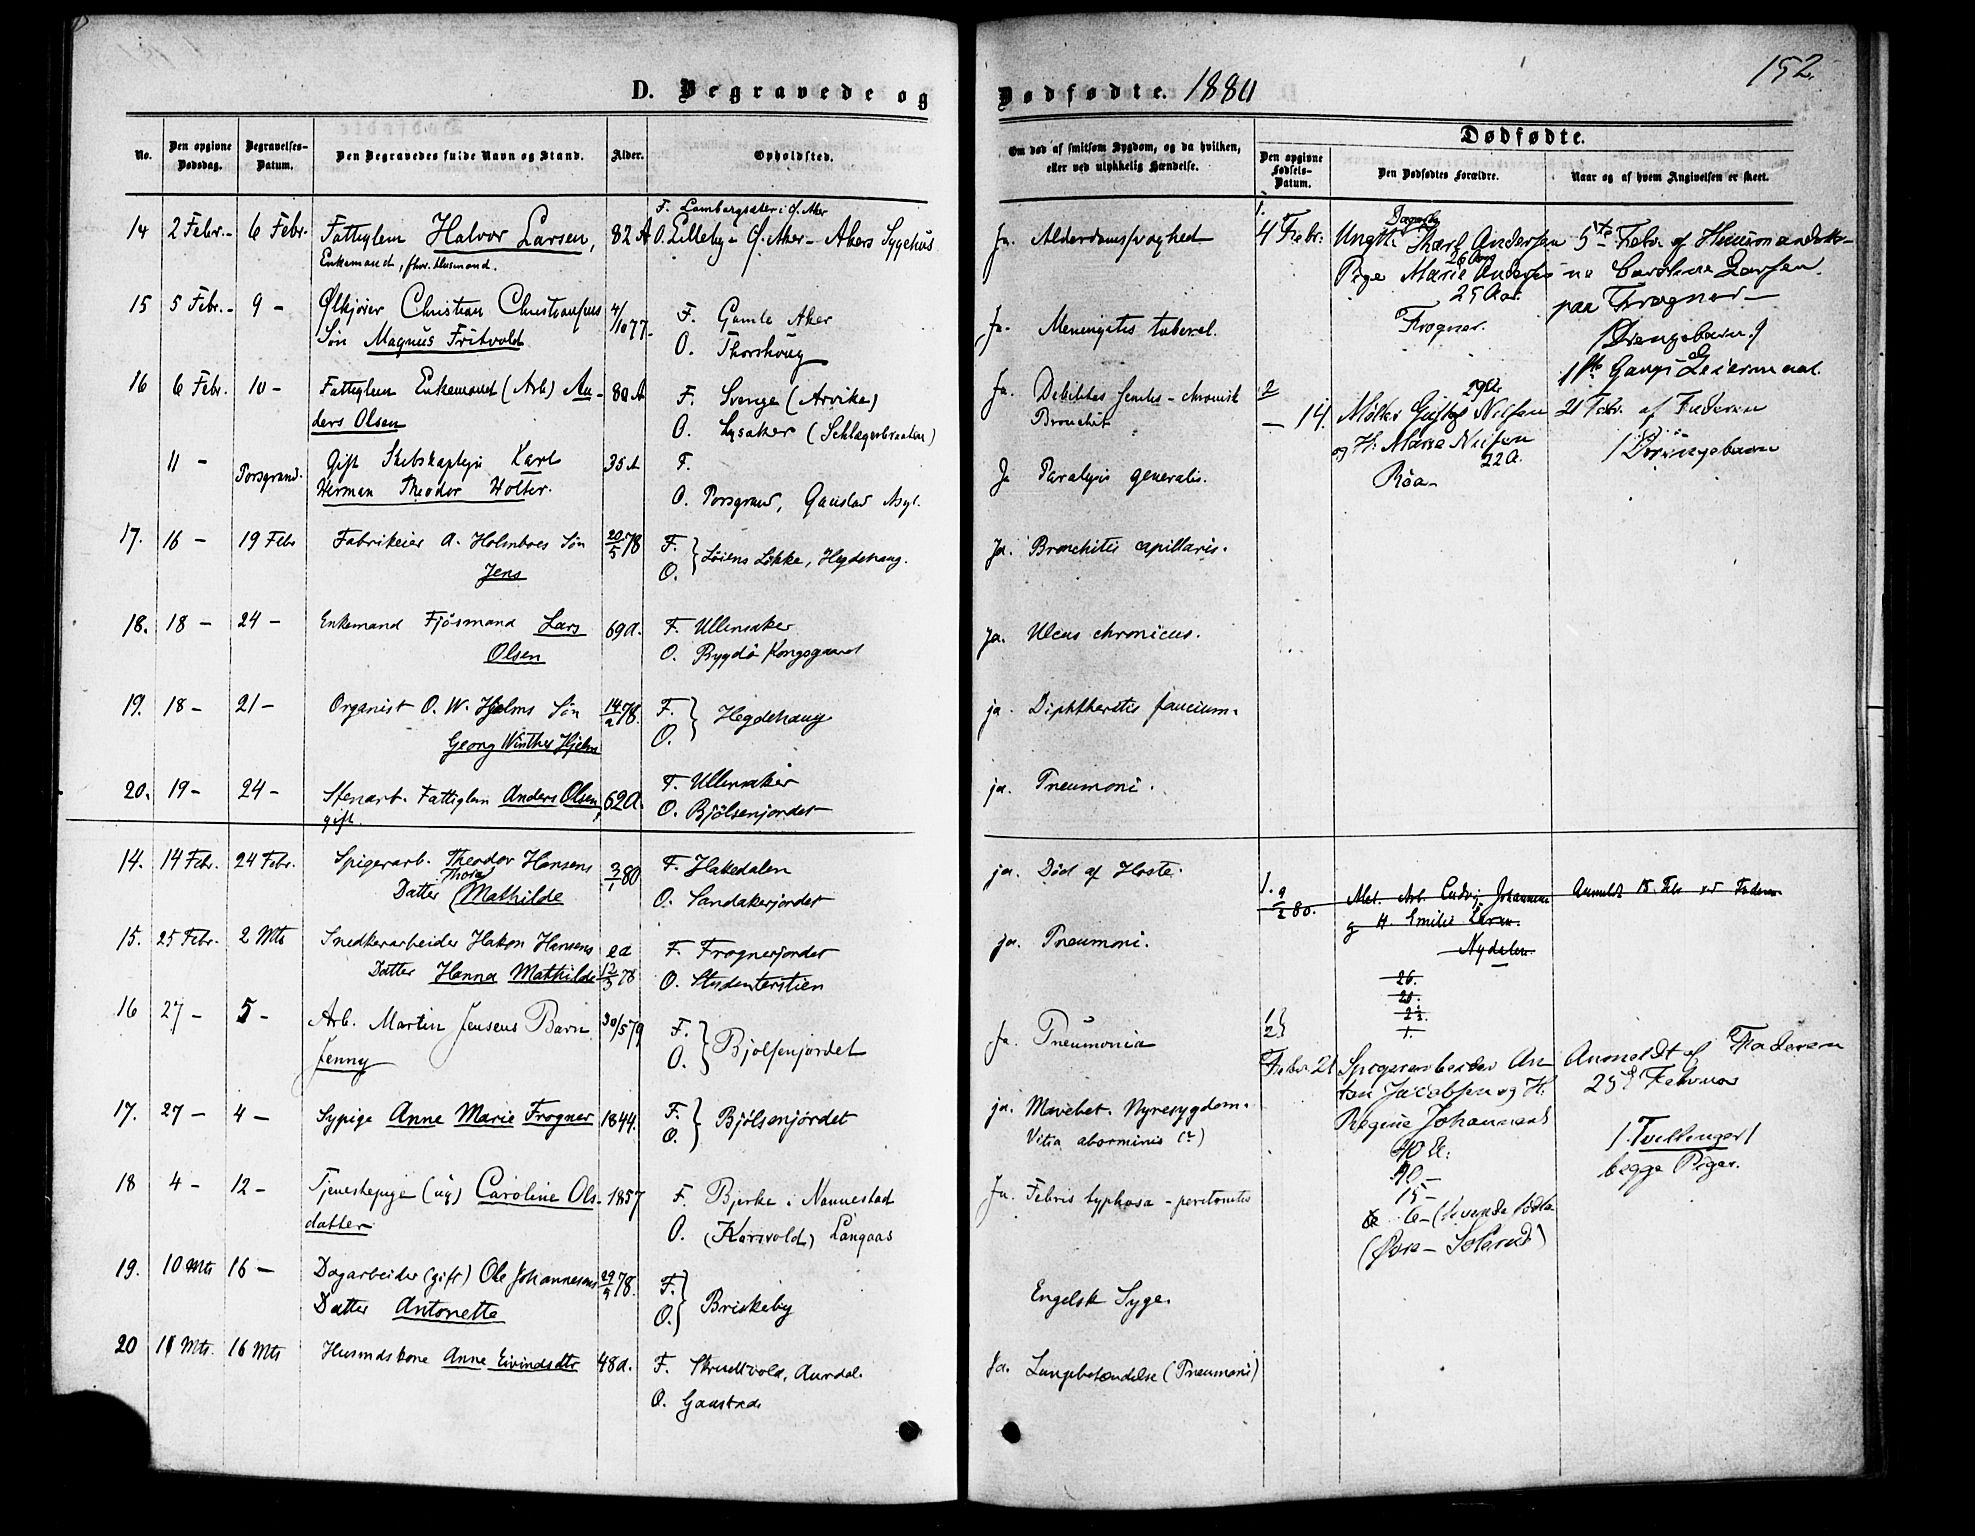 152.
D. Begravede og
Dødfødte. 1880
No.
Den opgivne Dødsdag.
Begravelses-Datum.
Den Begravedes fulde Navn og Stand.
Alder.
Opholdsted.
Om død af smitsom Sygdom, og da hvilken, eller ved ulykkelig Hændelse.
Dødfødte.
Den opgivne Fødsels-Datum.
Den Dødfødtes Forældre.
Naar og af hvem Angivelsen er skeet.
14 2 Febr. - 6 Febr. Fattiglem Halvor Larsen, 82 A
Enkemand, forr. Husmand.
O. Lilleby - Ø. Aker - Akers Sygehus
Ja. Alderdomssvaghed
15 5 Febr. - 9 - Ølkjører Christian Christiansens 4/10 77.
Søn Magnus Fritvold
F. Gamle Aker
O. Thorshoug
Ja. Meningitis tubercl.
16 6 Febr. 10 - Fattiglem Enkemand (Arb) An- 80 A
ders Olsen
F. Sverige (Arvika)
O. Lysaker
Ja. Debilitas senilis - chronisk
Bronchit
11 - Porsgrund. Gift Skibskaptejn Karl 35 A
Herman Theodor Holter.
F.
O. Porsgrund, Gaustad Asyl.
Ja Paralysis generalis.
17. 16 - 19 Febr Fabrikeier A. Holmboes Søn 20/5 78
Jens
F.
O. } Løiens Løkke, Hegdehaug.
Ja. Bronchitis capillaris.
18. 18 - 24 - Enkemand Fjøsmand Lars 69 A.
Olsen
F. Ullensaker
O. Bygdø Kongsgaard
Ja. Ulcus chronicus.
19. 18 - 21 - Organist O. W. Hjelms Søn 14/2 78.
Georg Winther Hjelm
F.
O. } Hegdehaug
ja. Diphtheritis faucium.
20. 19 - 24 - Stenarb. Fattiglem Anders Olsen, 62 A.
gift.
F. Ullensaker
O. Bjølsenjordet
ja. Pneumoni.
14. 14 Febr. 24 Febr. Spigerarb. Theodor Hansens 3/1 80
Thora
Datter Mathilde
F. Hakedalen
O. Sandakerjordet
ja. Død af Hoste.
15. 25 Febr. 2 Mts Snedkerarbeider Hakon Hansens
Datter Hanna Mathilde 12/3 78
F. Frognerjordet
O. Studenterstien
ja. Pneumoni.
16 27 - 5 - Arb. Martin Jensens Barn 30/5 79
Jenny
F.
O. } Bjølsenjordet
Ja. Pneumonia
17. 27 - 4 - Sypige Anne Marie Frogner 1844.
F.
O. } Bjølsenjordet
ja. Mavebet. Nyresygdom.
Vitia
18 4 - 12 - Tjenestepige (ug) Caroline Ols- 1857
datter
F. Bjerke i Nannestad
O. (Korsvold) Langaas
Ja. Febris typhosa - peritonitis
19. 10 Mts 16 - Dagarbeider (gift) Ole Johannesens 29/5 78.
Datter Antonette
F.
O. } Briskeby
Engelsk Syge.
20 11 Mts. 16 Mts Husmdskone Anne Eivindsdtr 48 A.
F. Aurdal.
O. Gaustad
Ja. Lungebetændelse (Pneumoni)
1.
4 Febr. Karl Andersen
26 Aar
Pige Marie Anders
25 Aar.
Frogner.
5te Febr. af
Caroline Larsen
paa Frogner -
(Drengebarn)
1ste Gangs Leiermaal.
2
- 14. Nilsen
29 A.
og H. Marie Nilsen
22 A.
Røa -
21 Febr. af Faderen
(Drengebarn
1. 9/2 80. Arb. Ludvig Johannesen
og H. Emilie Larsen.
Nydalen
Anmeldt 18. Febr. af Faderen
26.
1.
1
2 }
Febr. 21 Spigerarbeider An-
ton Jacobsen og H.
Regine Johannesd
40 A.
40 -
15 -
6 - (levende fødte
Anmeldt af Faderen
25de Februar
(Tvillinger)
begge Piger.